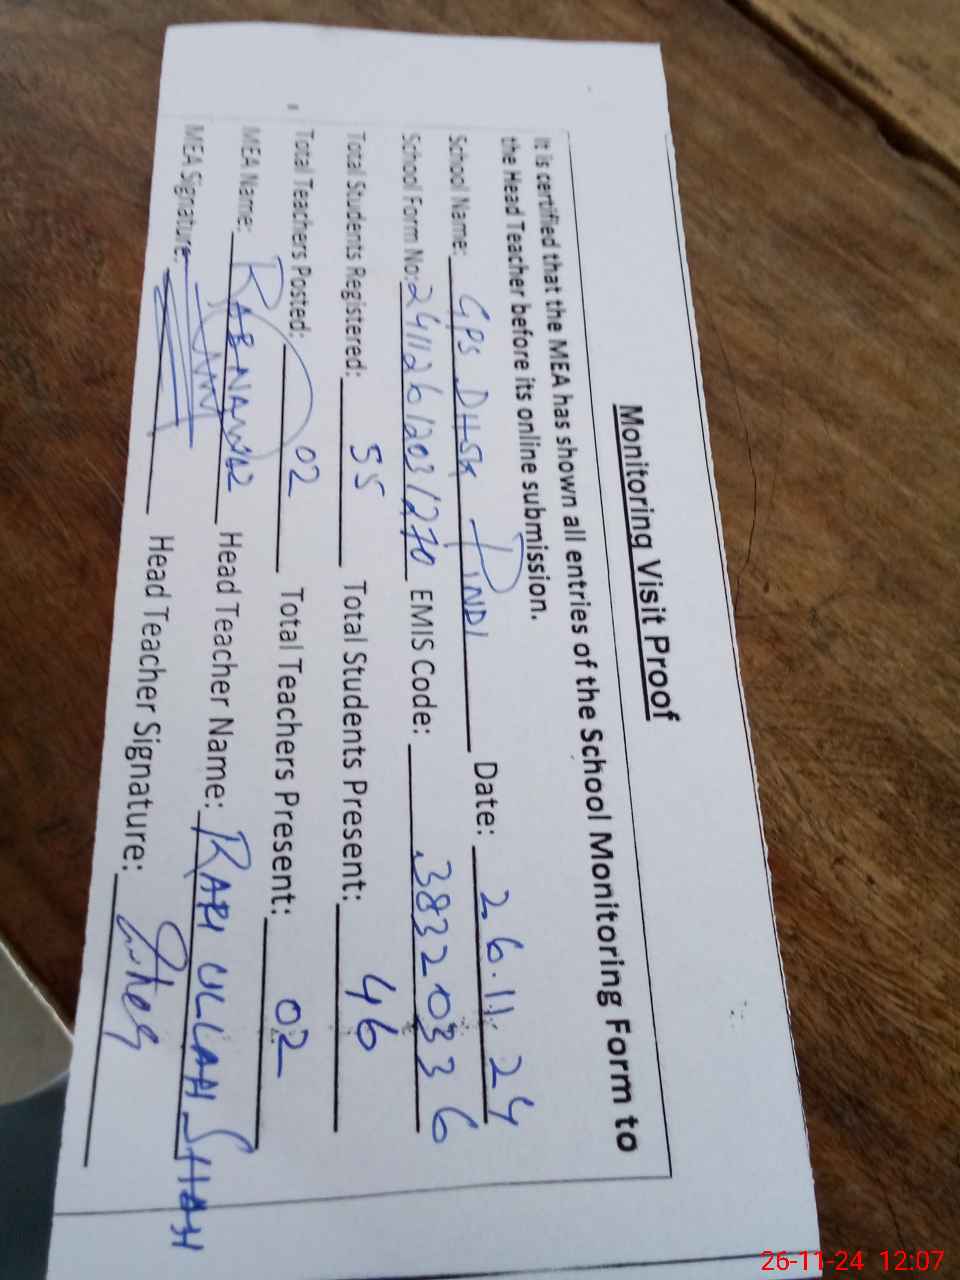 Monitoring Visit Proof
It is certified that the MEA has shown all entries of the School Monitoring Form to
the Head Teacher before its online submission.
School Name: GPS DHSK PINDI Date: 26.11.24
School Form No: 24112612031270 EMIS Code: 38320336
Total Students Registered: 55 Total Students Present: 46
Total Teachers Posted: 02 Total Teachers Present: 02
MEA Name: RABNAWAZ Head Teacher Name: RAFI ULLAH SHAH
MEA Signature: Head Teacher Signature:
26-11-24 12:07